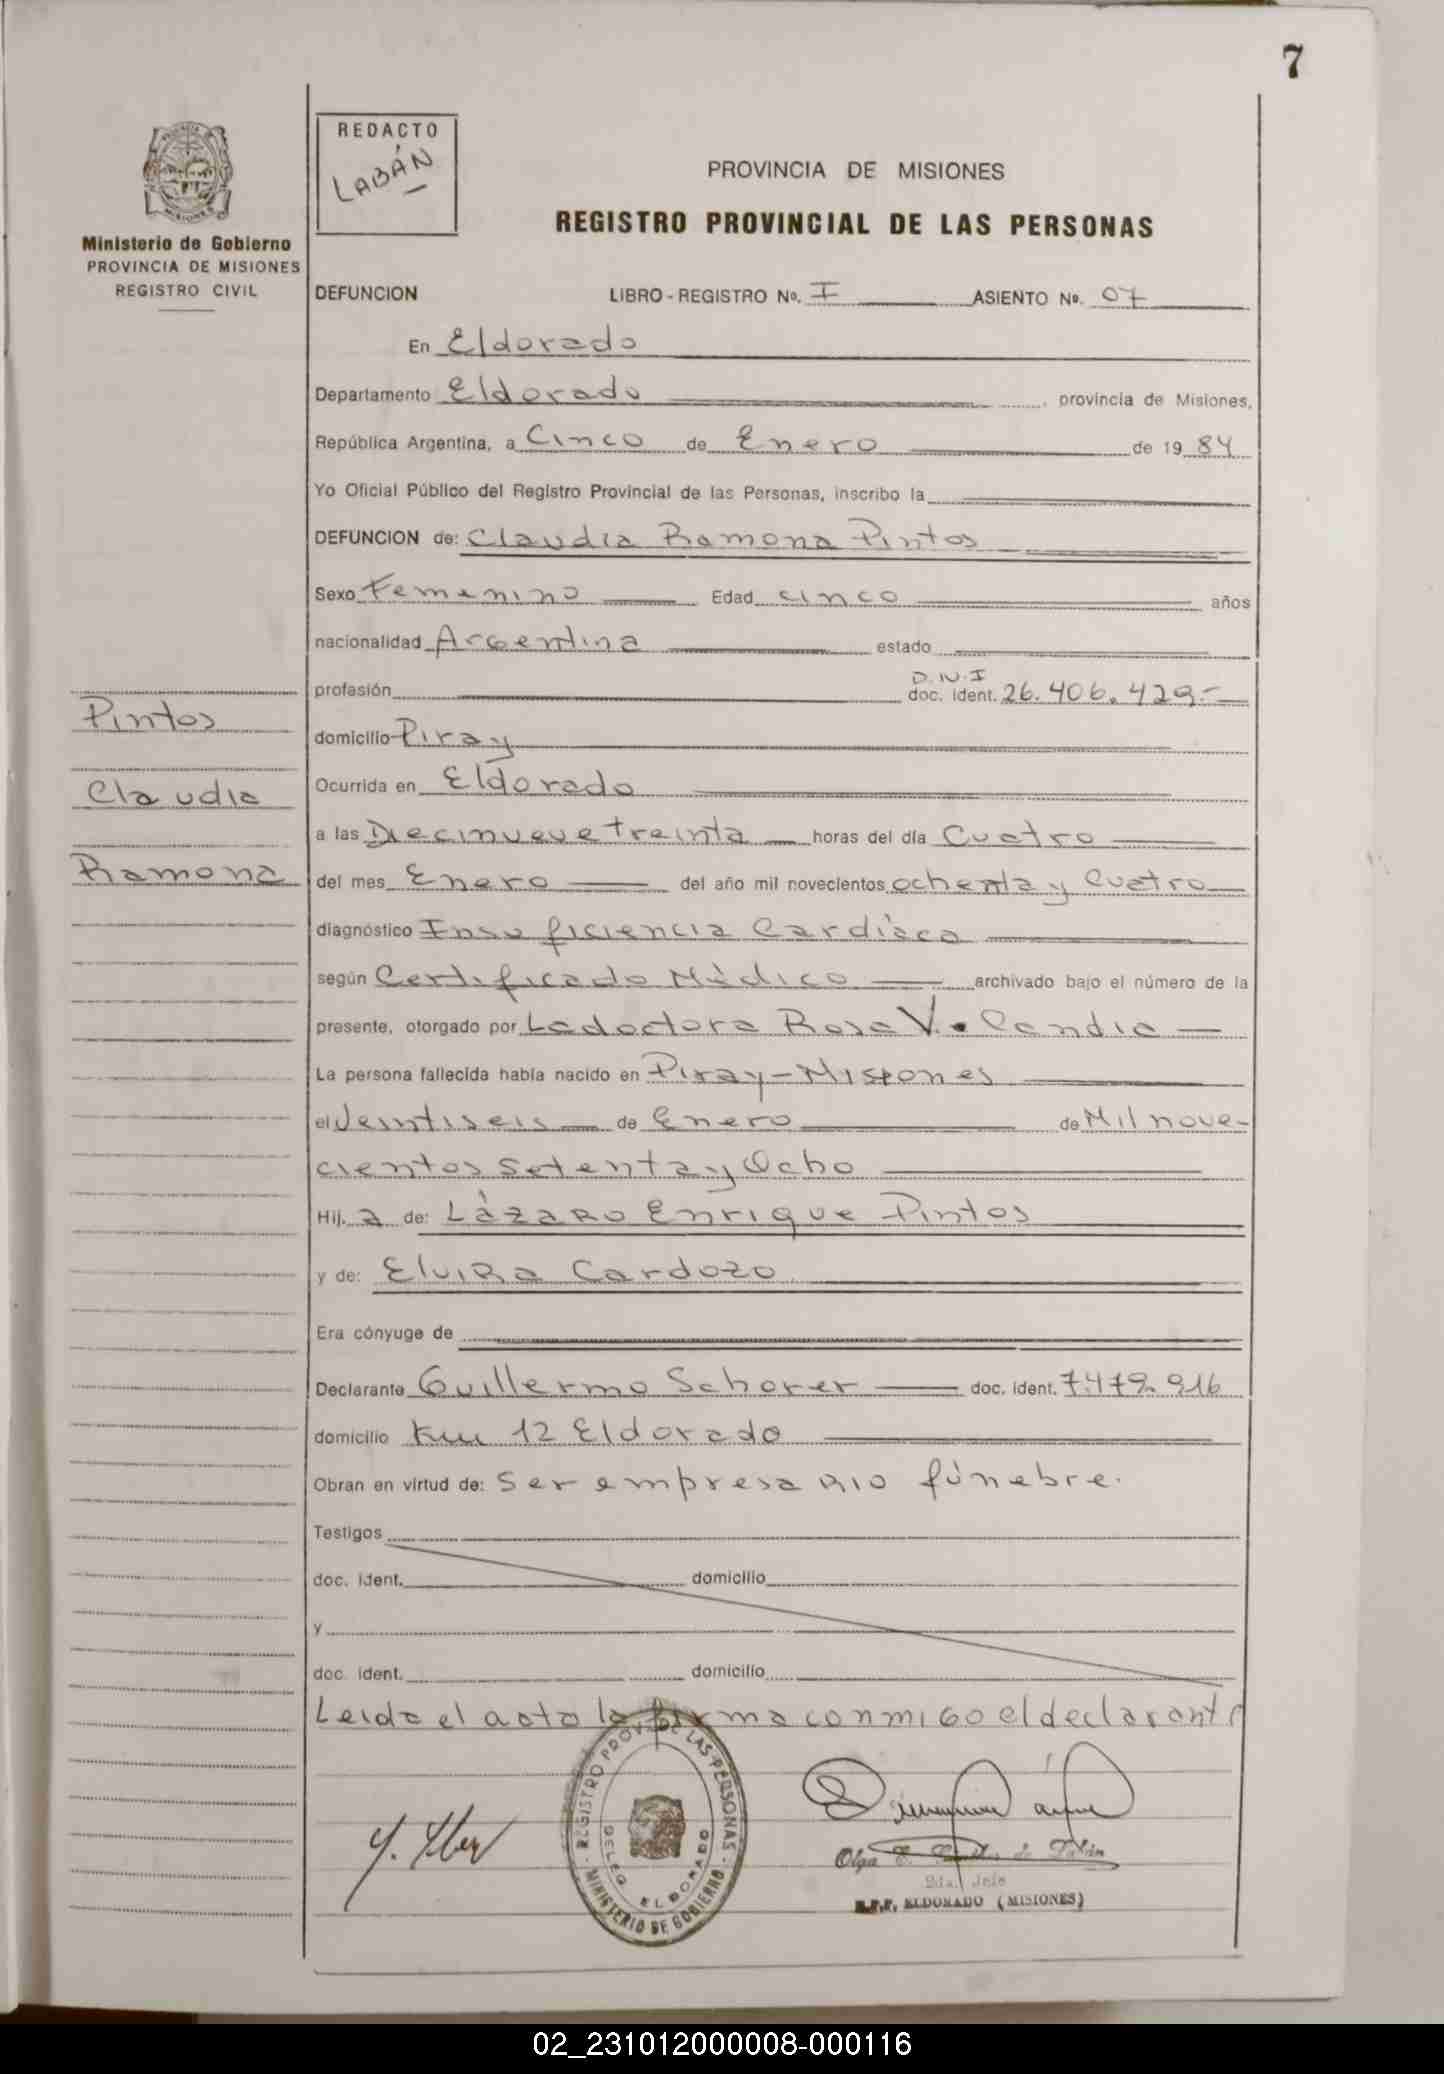 7
PROVINCIA DE MISIONES
Ministerio de Gobierno
PROVINCIA DE MISIONES
REGISTRO CIVIL
REDACTO
LABÁN
PROVINCIA DE MISIONES
REGISTRO PROVINCIAL DE LAS PERSONAS
DEFUNCION LIBRO - REGISTRO Nº. I ASIENTO Nº. 07
En Eldorado
Departamento Eldorado, provincia de Misiones,
República Argentina, a Cinco de Enero de 1984
Yo Oficial Público del Registro Provincial de las Personas, inscribo la
DEFUNCION de: Claudia Ramona Pintos
Sexo Femenino Edad cinco años
nacionalidad Argentina estado
profesión D.N.I doc. ident. 26.406.429.-
Pintos
domicilio Piray
Claudia
Ocurrida en Eldorado
a las Diecinueve treinta horas del día Cuatro
Ramona
del mes Enero del año mil novecientos ochenta y Cuatro
diagnóstico Insuficiencia Cardíaca
según Certificado Médico archivado bajo el número de la
presente, otorgado por La doctora Rosa V. Candia
La persona fallecida había nacido en Piray-Misiones
el Veintiseis de Enero de Mil nove-
cientos Setenta y Ocho
Hij a de: Lázaro Enrique Pintos
y de: Elvira Cardozo
Era cónyuge de
Declarante Guillermo Schorer doc. ident. 7.479.916
domicilio Km 12 Eldorado
Obran en virtud de: Ser empresario fúnebre.
Testigos
doc. ident. domicilio
y
doc. ident. domicilio
Leida el acta la firma conmigo el declarante
REGISTRO PROV. DE LAS PERSONAS
MINISTERIO DE GOBIERNO
DELEG. ELDORADO
Olga E. de Labán
2da. Jefe
R.P.P. ELDORADO (MISIONES)
02_231012000008-000116